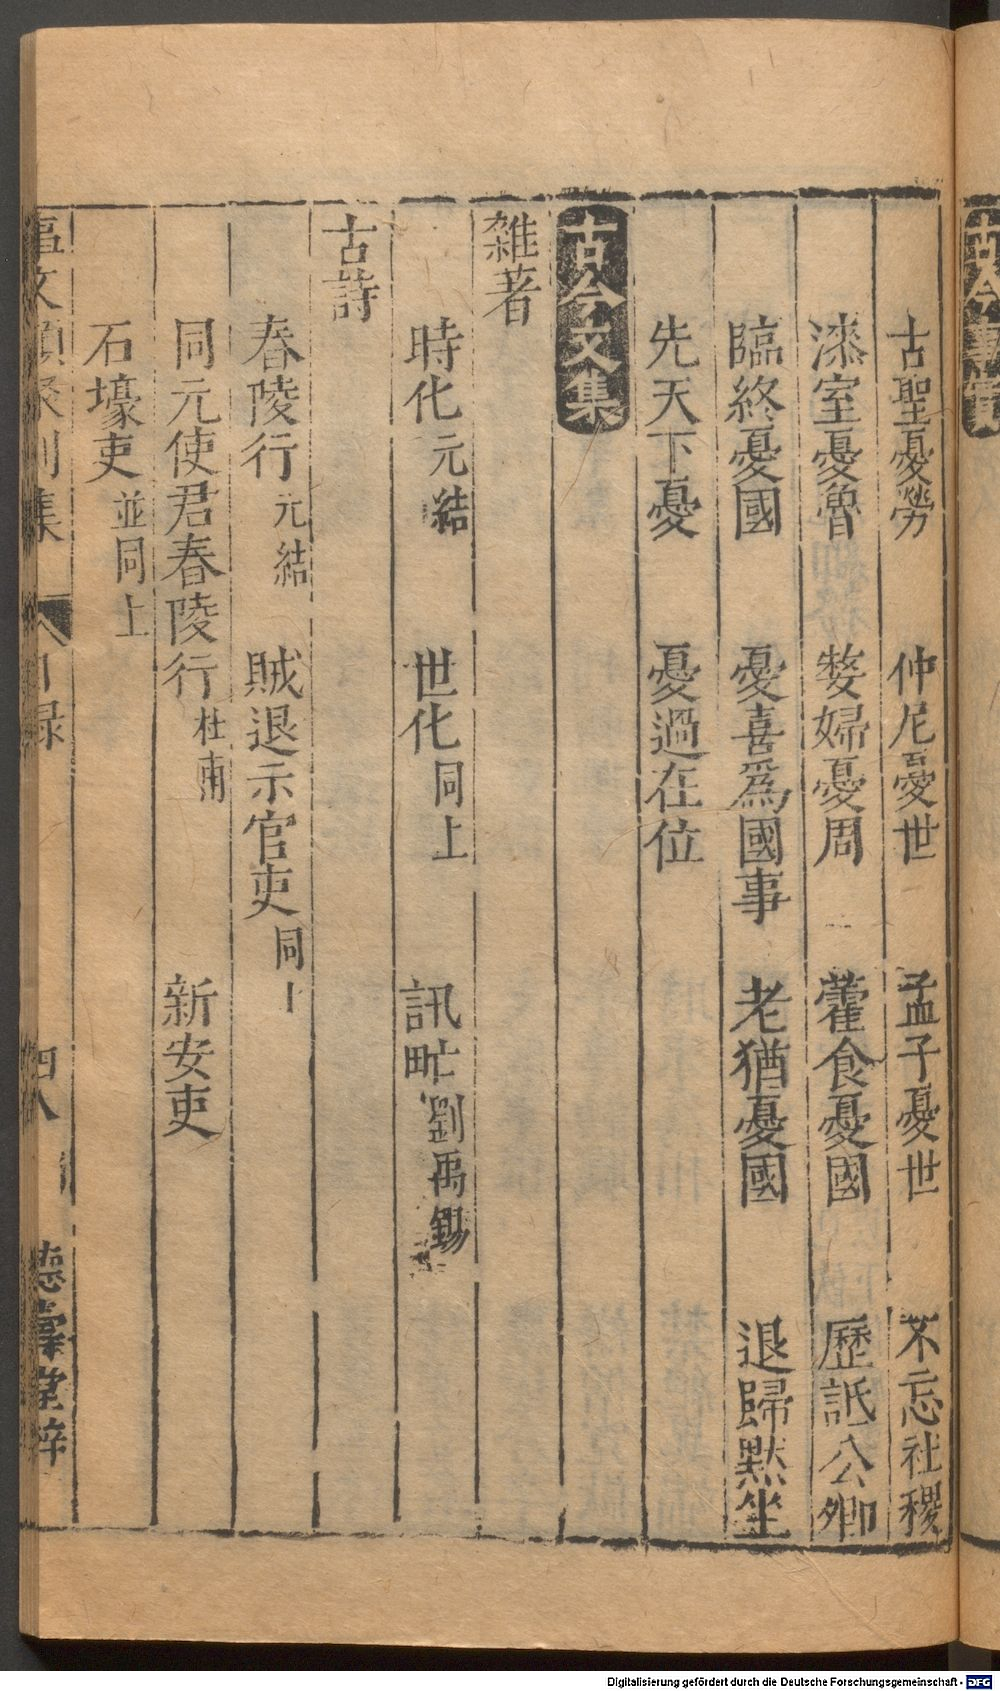 古聖憂勞　仲尼憂世　孟子憂世　不忘社稷
漆室憂魯　嫠婦憂周　藿食憂國　歷詆公卿
臨終憂國　憂喜爲國事　老猶憂國　退歸默坐
先天下憂　憂過在位
古今文集
雜著
時化 元結　世化 同上　訊甿 劉禹錫
古詩
舂陵行 元結　賊退示官吏 同上
同元使君舂陵行 杜甫　新安吏
石壕吏 並同上
事文類聚別集　目錄　四八　德壽堂梓
Digitalisierung gefördert durch die Deutsche Forschungsgemeinschaft - DFG